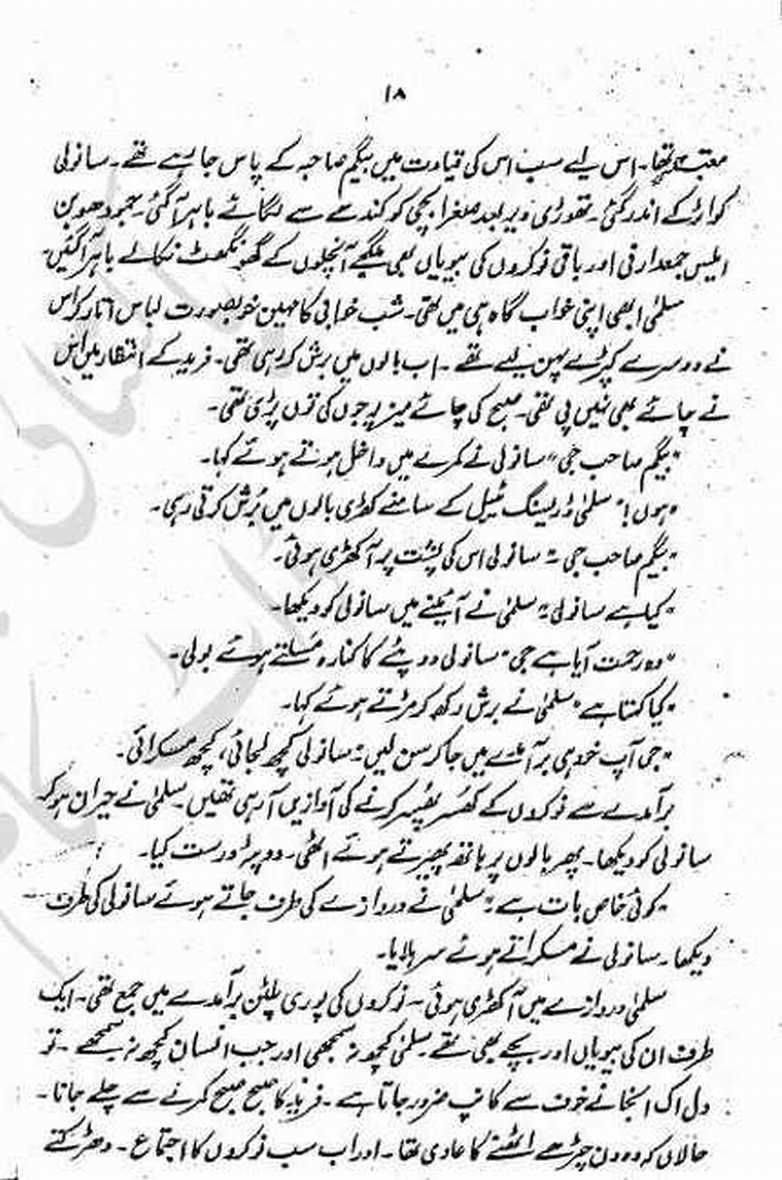 ۱۸
معتبر تھا۔ اس لیے سب اس کی قیادت میں بیگم صاحبہ کے پاس جا رہے تھے۔ سانولی
کواڑ کے اندر گئی۔ تھوڑی دیر بعد صغرا بچی کو کندھے سے لگائے باہر آ گئی۔ جمبو دھوبن
ایلس جمعدارنی اور باقی نوکروں کی بیویاں بھی ملگجے آنچلوں کے گھونگھٹ نکالے باہر آ گئیں۔
سلمیٰ ابھی اپنی خواب گاہ ہی میں تھی۔ شب خوابی کا مہین خوبصورت لباس اتار کر اس
نے دوسرے کپڑے پہن لیے تھے۔ اب بالوں میں برش کر رہی تھی۔ فرید کے انتظار میں اس
نے چائے بھی نہیں پی تھی۔ صبح کی چائے میز پر جوں کی توں پڑی تھی۔
"بیگم صاحب جی" سانولی نے کمرے میں داخل ہوتے ہوئے کہا۔
"ہوں!" سلمیٰ ڈریسنگ ٹیبل کے سامنے کھڑی بالوں میں برش کرتی رہی۔
"بیگم صاحب جی" سانولی اس کی پشت پر آ کھڑی ہوئی۔
"کیا ہے سانولی" سلمیٰ نے آئینے میں سانولی کو دیکھا۔
"وہ رحمت آیا ہے جی" سانولی دوپٹے کا کنارہ مَسلتے ہوئے بولی۔
"کیا کہتا ہے" سلمیٰ نے برش رکھ کر مڑتے ہوئے کہا۔
"جی آپ خود ہی برآمدے میں جا کر سن لیں" سانولی کچھ لجائی، کچھ مسکرائی۔
برآمدے سے نوکروں کے کھُسر پھُسر کرنے کی آوازیں آ رہی تھیں۔ سلمیٰ نے حیران ہو کر
سانولی کو دیکھا۔ پھر بالوں پر ہاتھ پھیرتے ہوئے اٹھی۔ دوپٹہ درست کیا۔
"کوئی خاص بات ہے" سلمیٰ نے دروازے کی طرف جاتے ہوئے سانولی کی طرف
دیکھا۔ سانولی نے مسکراتے ہوئے سر ہلایا۔
سلمیٰ دروازے میں آ کھڑی ہوئی۔ نوکروں کی پوری پلٹن برآمدے میں جمع تھی۔ ایک
طرف ان کی بیویاں اور بچے بھی تھے۔ سلمیٰ کچھ نہ سمجھی اور جب انسان کچھ نہ سمجھے۔ تو
دل اک انجانے خوف سے کانپ ضرور جاتا ہے۔ فرید کا صبح صبح کمرے سے چلے جانا۔
حالاں کہ وہ دن چڑھے اٹھنے کا عادی تھا۔ اور اب سب نوکروں کا اجتماع۔ دھڑکتے